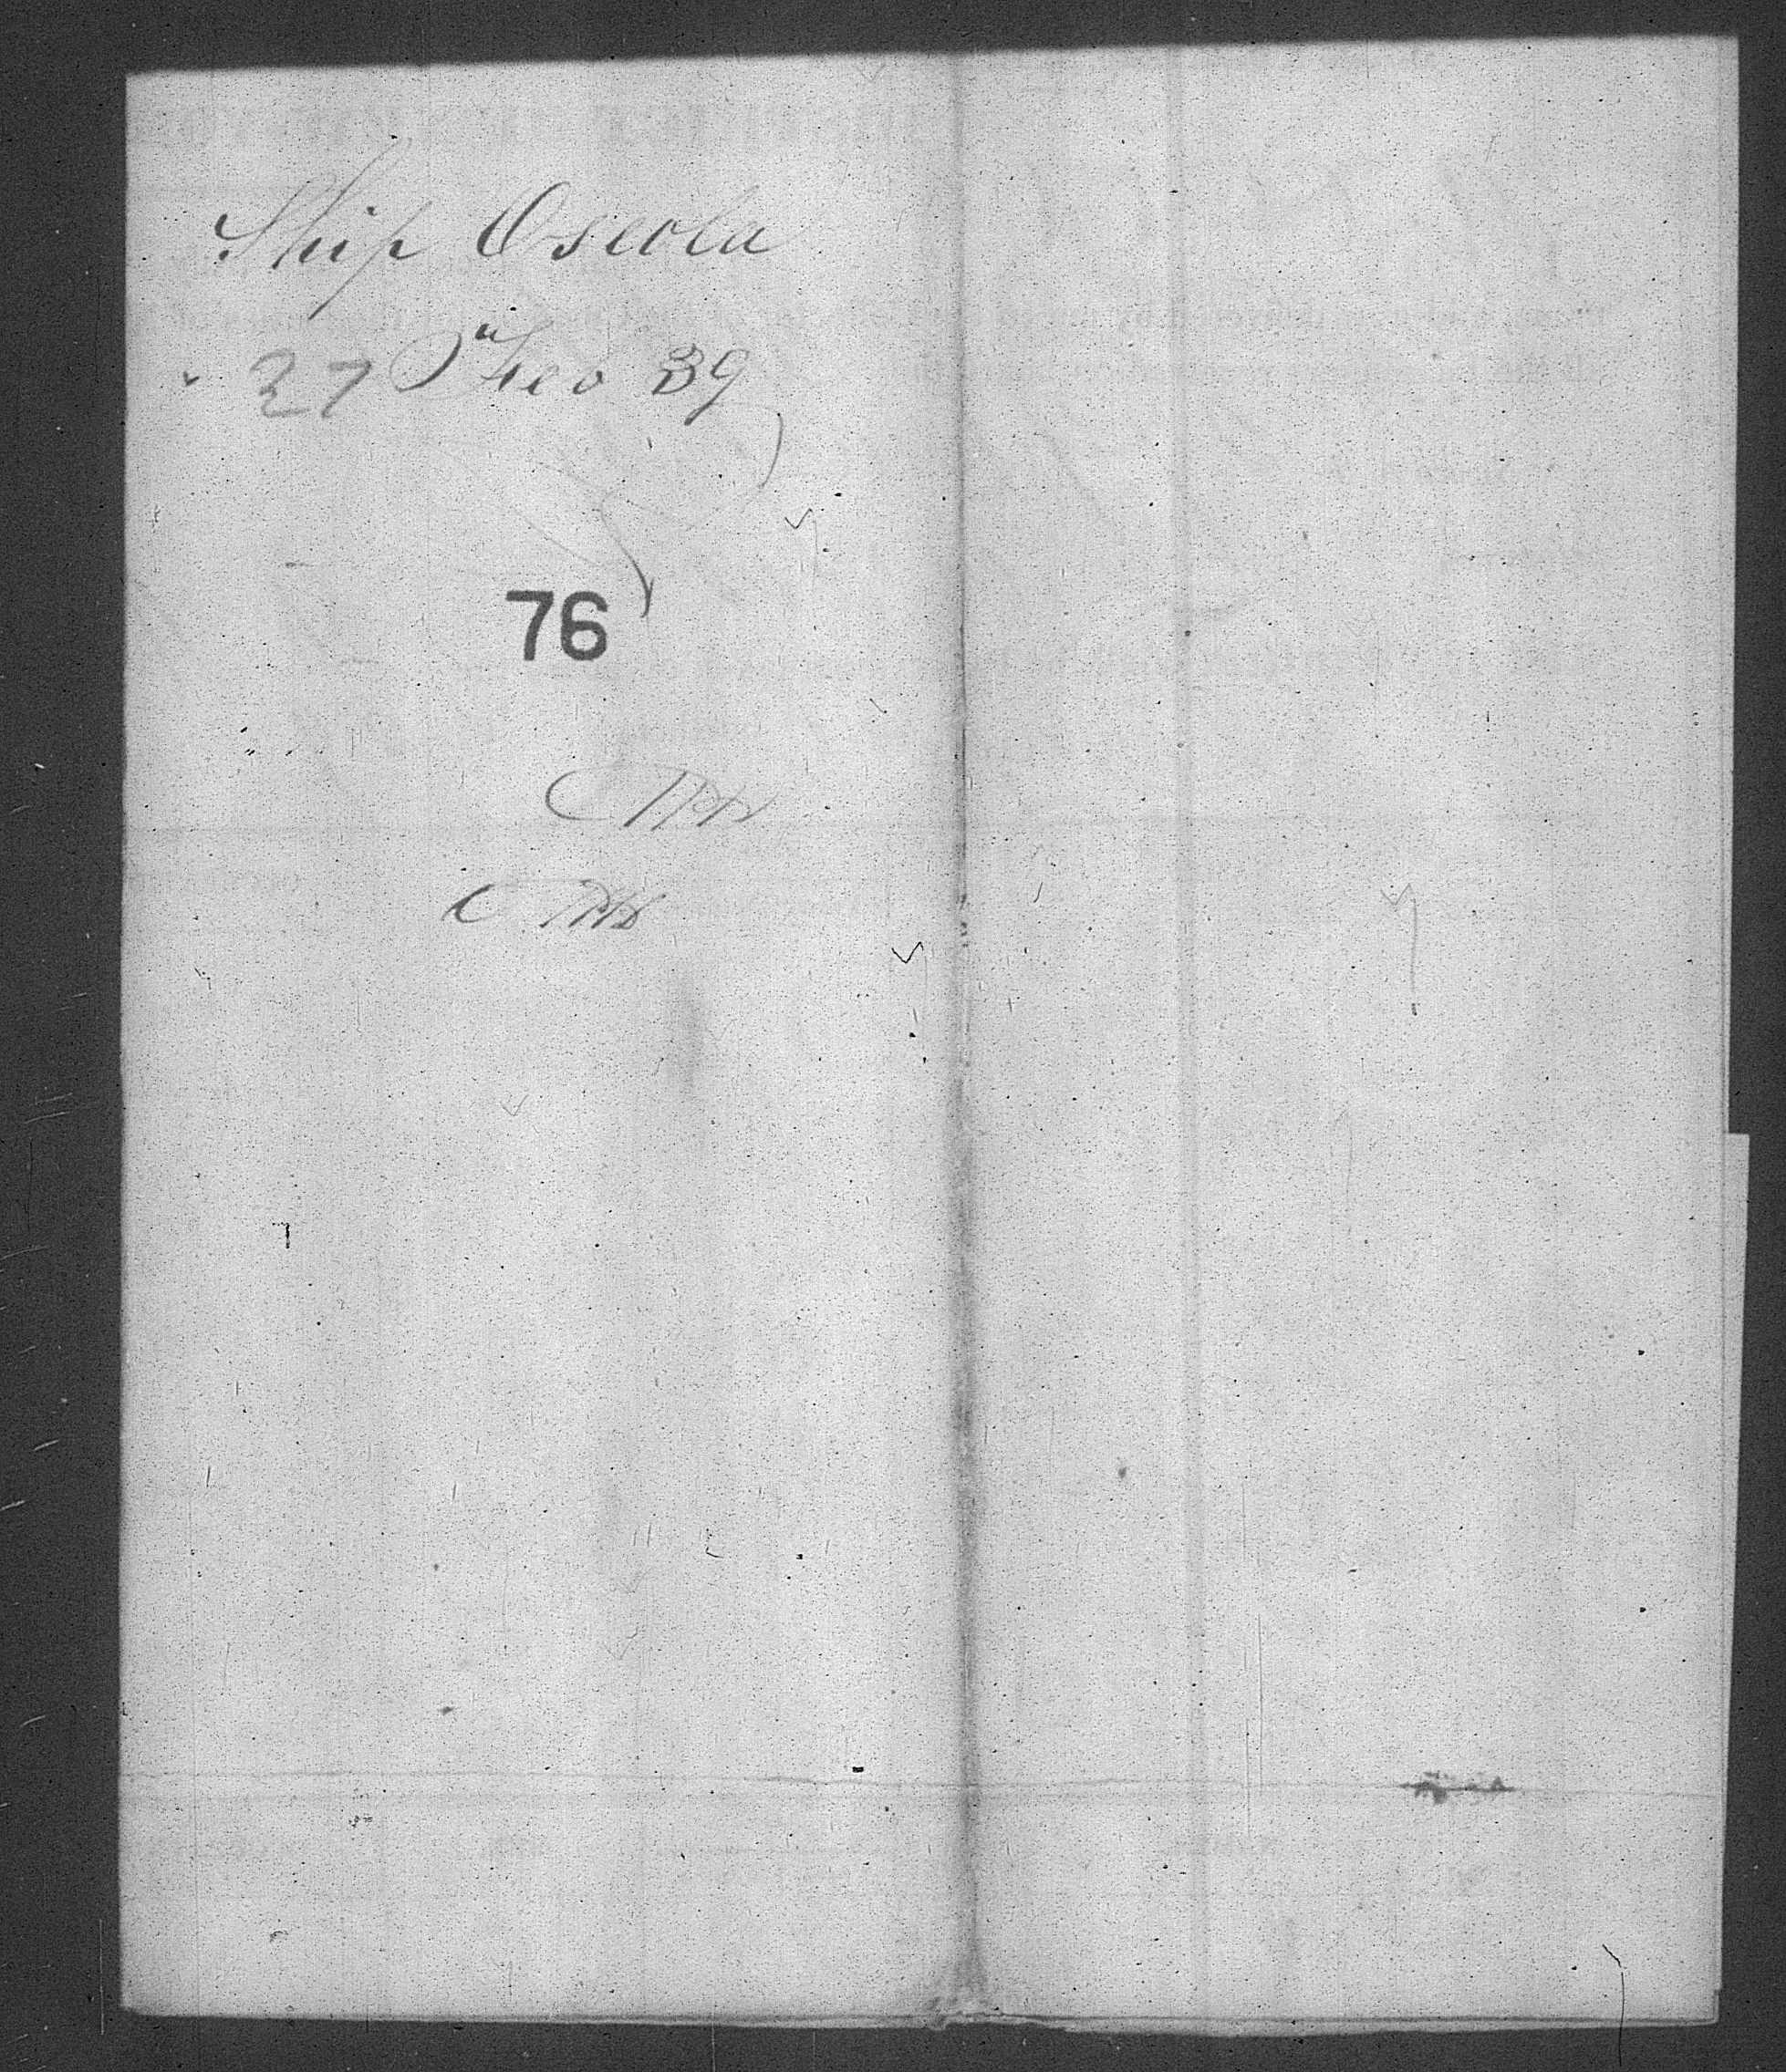 Ship Oseola
27 Feb 39
76